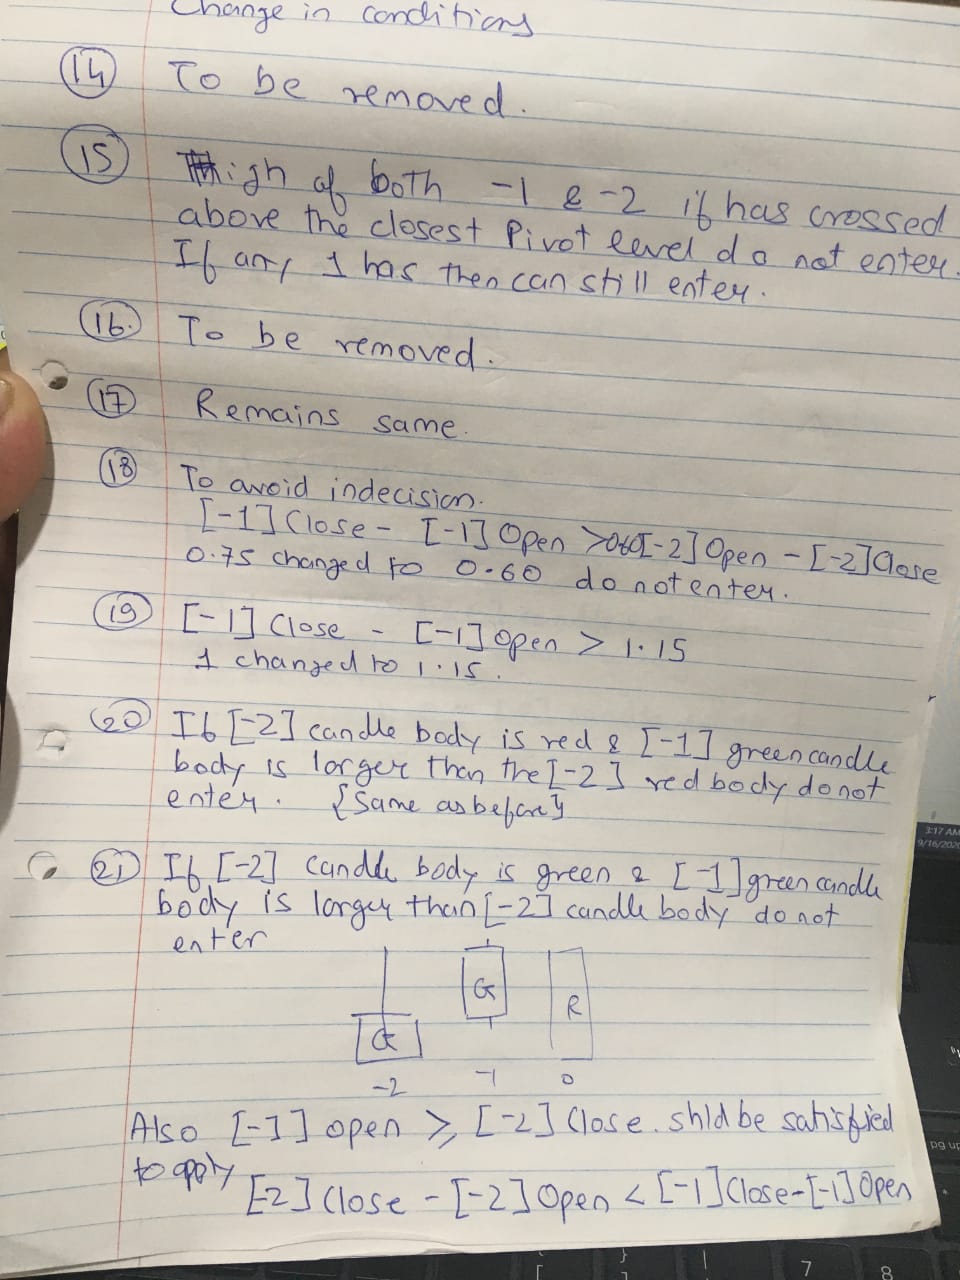 Change in conditions
14 To be removed.
15 High of both -1 & -2 if has crossed
above the closest Pivot level do not enter.
If any 1 has then can still enter.
16. To be removed.
17 Remains same.
18 To avoid indecision.
[-1] Close - [-1] Open > 0.60 [-2] Open - [-2] Close
0.75 changed to 0.60 do not enter.
19 [-1] Close - [-1] Open > 1.15
1 changed to 1.15.
20 If [-2] candle body is red & [-1] green candle
body is larger than the [-2] red body do not
enter. {Same as before}
21 If [-2] candle body is green & [-1] green candle
body is larger than [-2] candle body do not
enter
G G R
-2 -1 0
Also [-1] open ≥ [-2] Close. shld be satisfied
to apply
[-2] Close - [-2] Open < [-1] Close - [-1] Open
3:17 AM
9/16/202
pg up
7 8